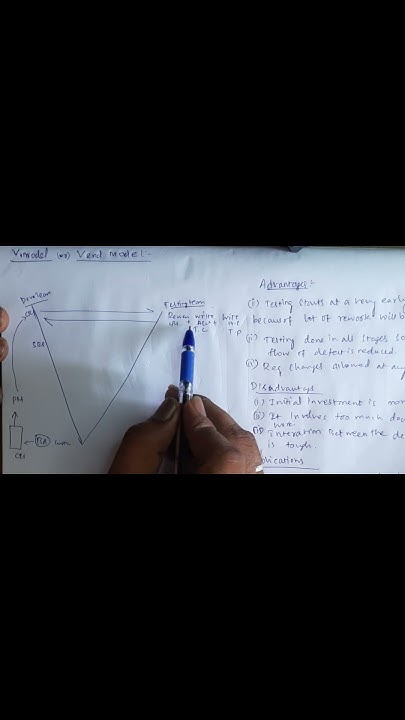 Vmodel (or) V and V MODEL:-
Dev.team
CRS
SRS
PM
BA
Testing team
Review write write
+ ACc +
T.C T.P
Advantages:-
(i) Testing starts at a very early
because of lot of rework will be
(ii) Testing done in all stages so
flow of defect is reduced.
Req changes allowed at any
Disadvantages
(i) Initial Investment is mor
(ii) It Involves too much do
work
(iii) Interation Between the de
is tough.
plications